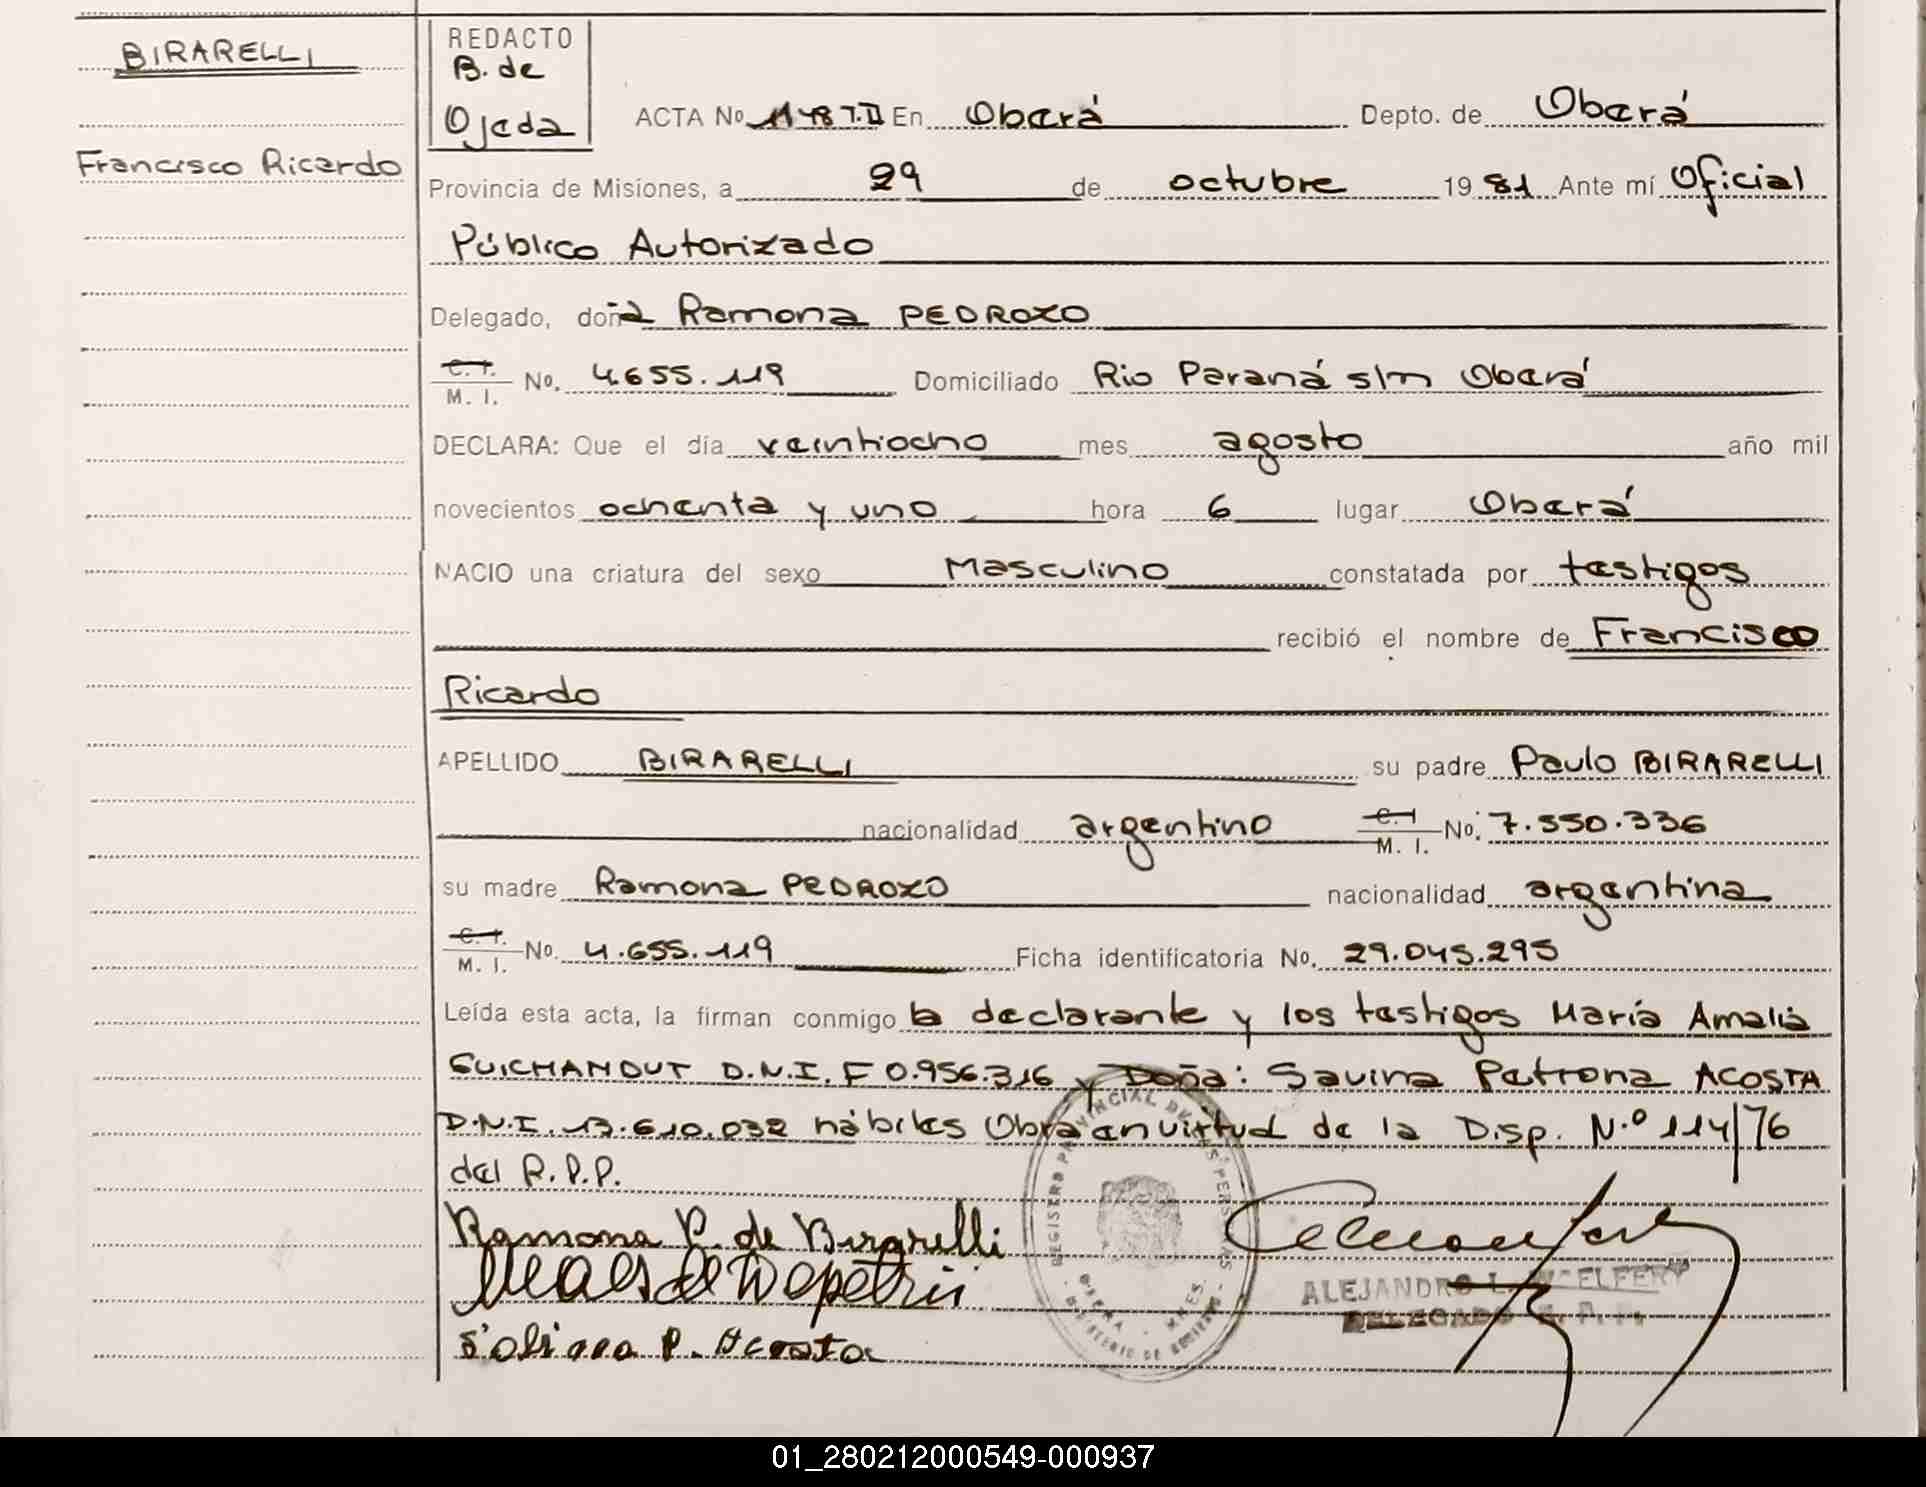 BIRARELLI
Francisco Ricardo
REDACTO
B. de
Ojeda
ACTA No 1148 T.II En Oberá Depto. de Oberá
Provincia de Misiones, a 29 de octubre 1981 Ante mí Oficial
Público Autorizado
Delegado, doña Ramona PEDROZO
C. I. M. I. No. 4.655.119 Domiciliado Rio Paraná s/n Oberá
DECLARA: Que el día veintiocho mes agosto año mil
novecientos ochenta y uno hora 6 lugar Oberá
NACIO una criatura del sexo Masculino constatada por testigos
recibió el nombre de Francisco
Ricardo
APELLIDO BIRARELLI su padre Paulo BIRARELLI
nacionalidad argentino C. I M. I. No. 7.550.336
su madre Ramona PEDROZO nacionalidad argentina
C. I. M. I. No. 4.655.119 Ficha identificatoria No. 29.045.295
Leída esta acta, la firman conmigo la declarante y los testigos María Amalia
GUICHANDUT D.N.I. F 0.956.316 y Doña: Savina Petrona ACOSTA
D.N.I. 17.610.032 hábiles Obra en virtud de la Disp. N.º 114/76
del R.P.P.
Ramona P. de Birarelli
P. Acosta
REGISTRO PROVINCIAL DE LAS PERSONAS
OBERA - MNES.
MINISTERIO DE GOBIERNO
ALEJANDRO L.
DELEGADO R. P. P.
01_280212000549-000937